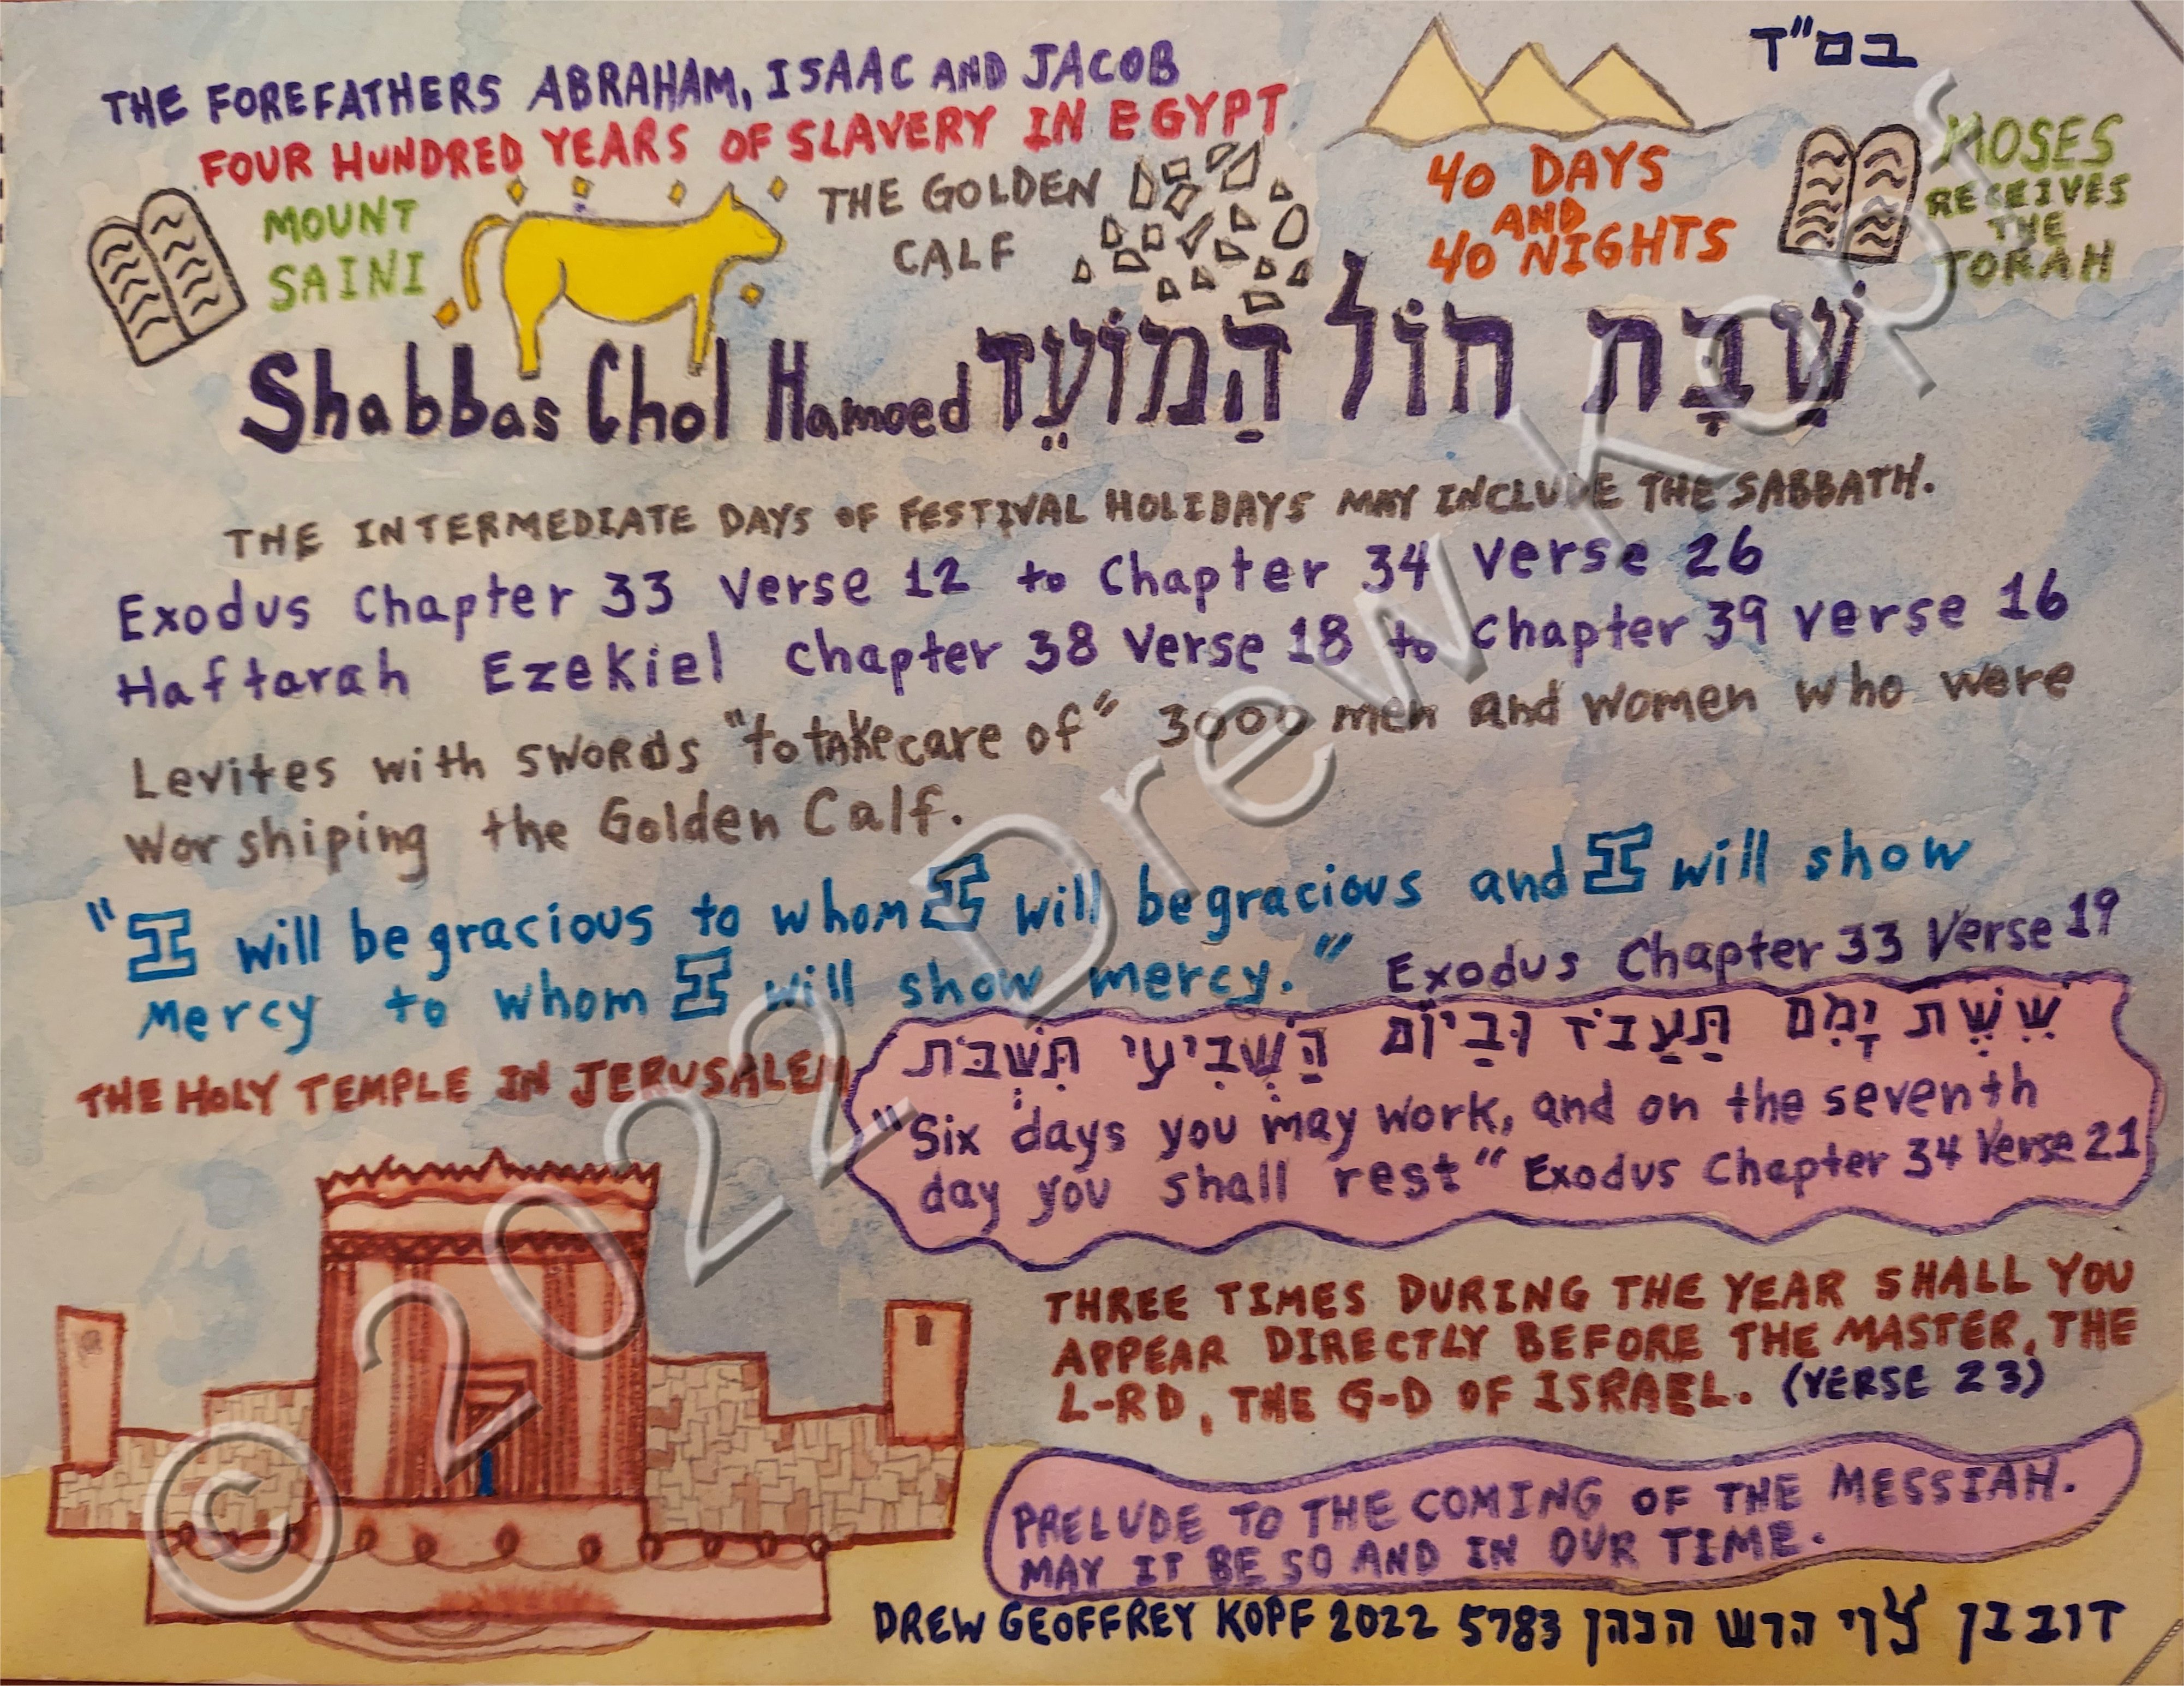 בס"ד
THE FOREFATHERS ABRAHAM, ISAAC AND JACOB
FOUR HUNDRED YEARS OF SLAVERY IN EGYPT
MOUNT
SAINI
THE GOLDEN
CALF
40 DAYS
AND
40 NIGHTS
MOSES
RECEIVES
THE
TORAH
Shabbas Chol Hamoed שַׁבָּת חוֹל הַמוֹעֵד
THE INTERMEDIATE DAYS OF FESTIVAL HOLIDAYS MAY INCLUDE THE SABBATH.
Exodus Chapter 33 Verse 12 to Chapter 34 Verse 26
Haftarah Ezekiel Chapter 38 Verse 18 to Chapter 39 Verse 16
Levites with swords "to take care of" 3000 men and women who were
worshiping the Golden Calf.
"I will be gracious to whom I will be gracious and I will show
mercy to whom I will show mercy." Exodus Chapter 33 Verse 19
THE HOLY TEMPLE IN JERUSALEM
שֵׁשֶׁת יָמִם תַּעֲבֹד וּבַיוֹם הַשְּׁבִיעִי תִּשְׁבֹּת
"Six days you may work, and on the seventh
day you shall rest" Exodus Chapter 34 Verse 21
THREE TIMES DURING THE YEAR SHALL YOU
APPEAR DIRECTLY BEFORE THE MASTER, THE
L-RD, THE G-D OF ISRAEL. (VERSE 23)
PRELUDE TO THE COMING OF THE MESSIAH.
MAY IT BE SO AND IN OUR TIME.
DREW GEOFFREY KOPF 2022 5783 דוב בן הכהן
© 2022 Drew Kopf